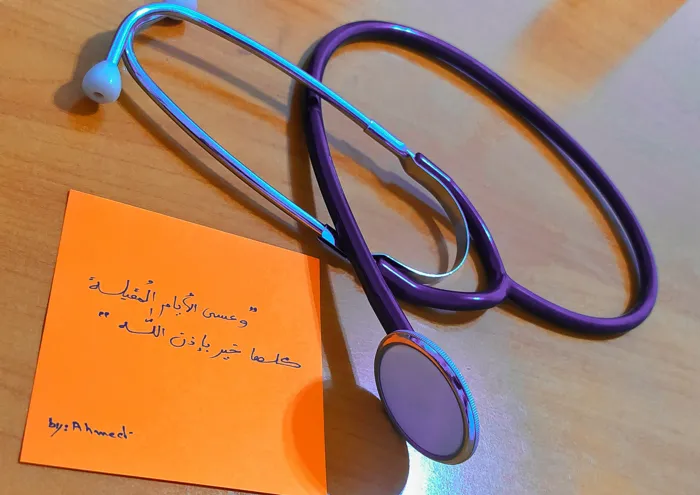 "وعسى الأيام المُقبلة
كلها خير بإذن اللّه"
by: Ahmed